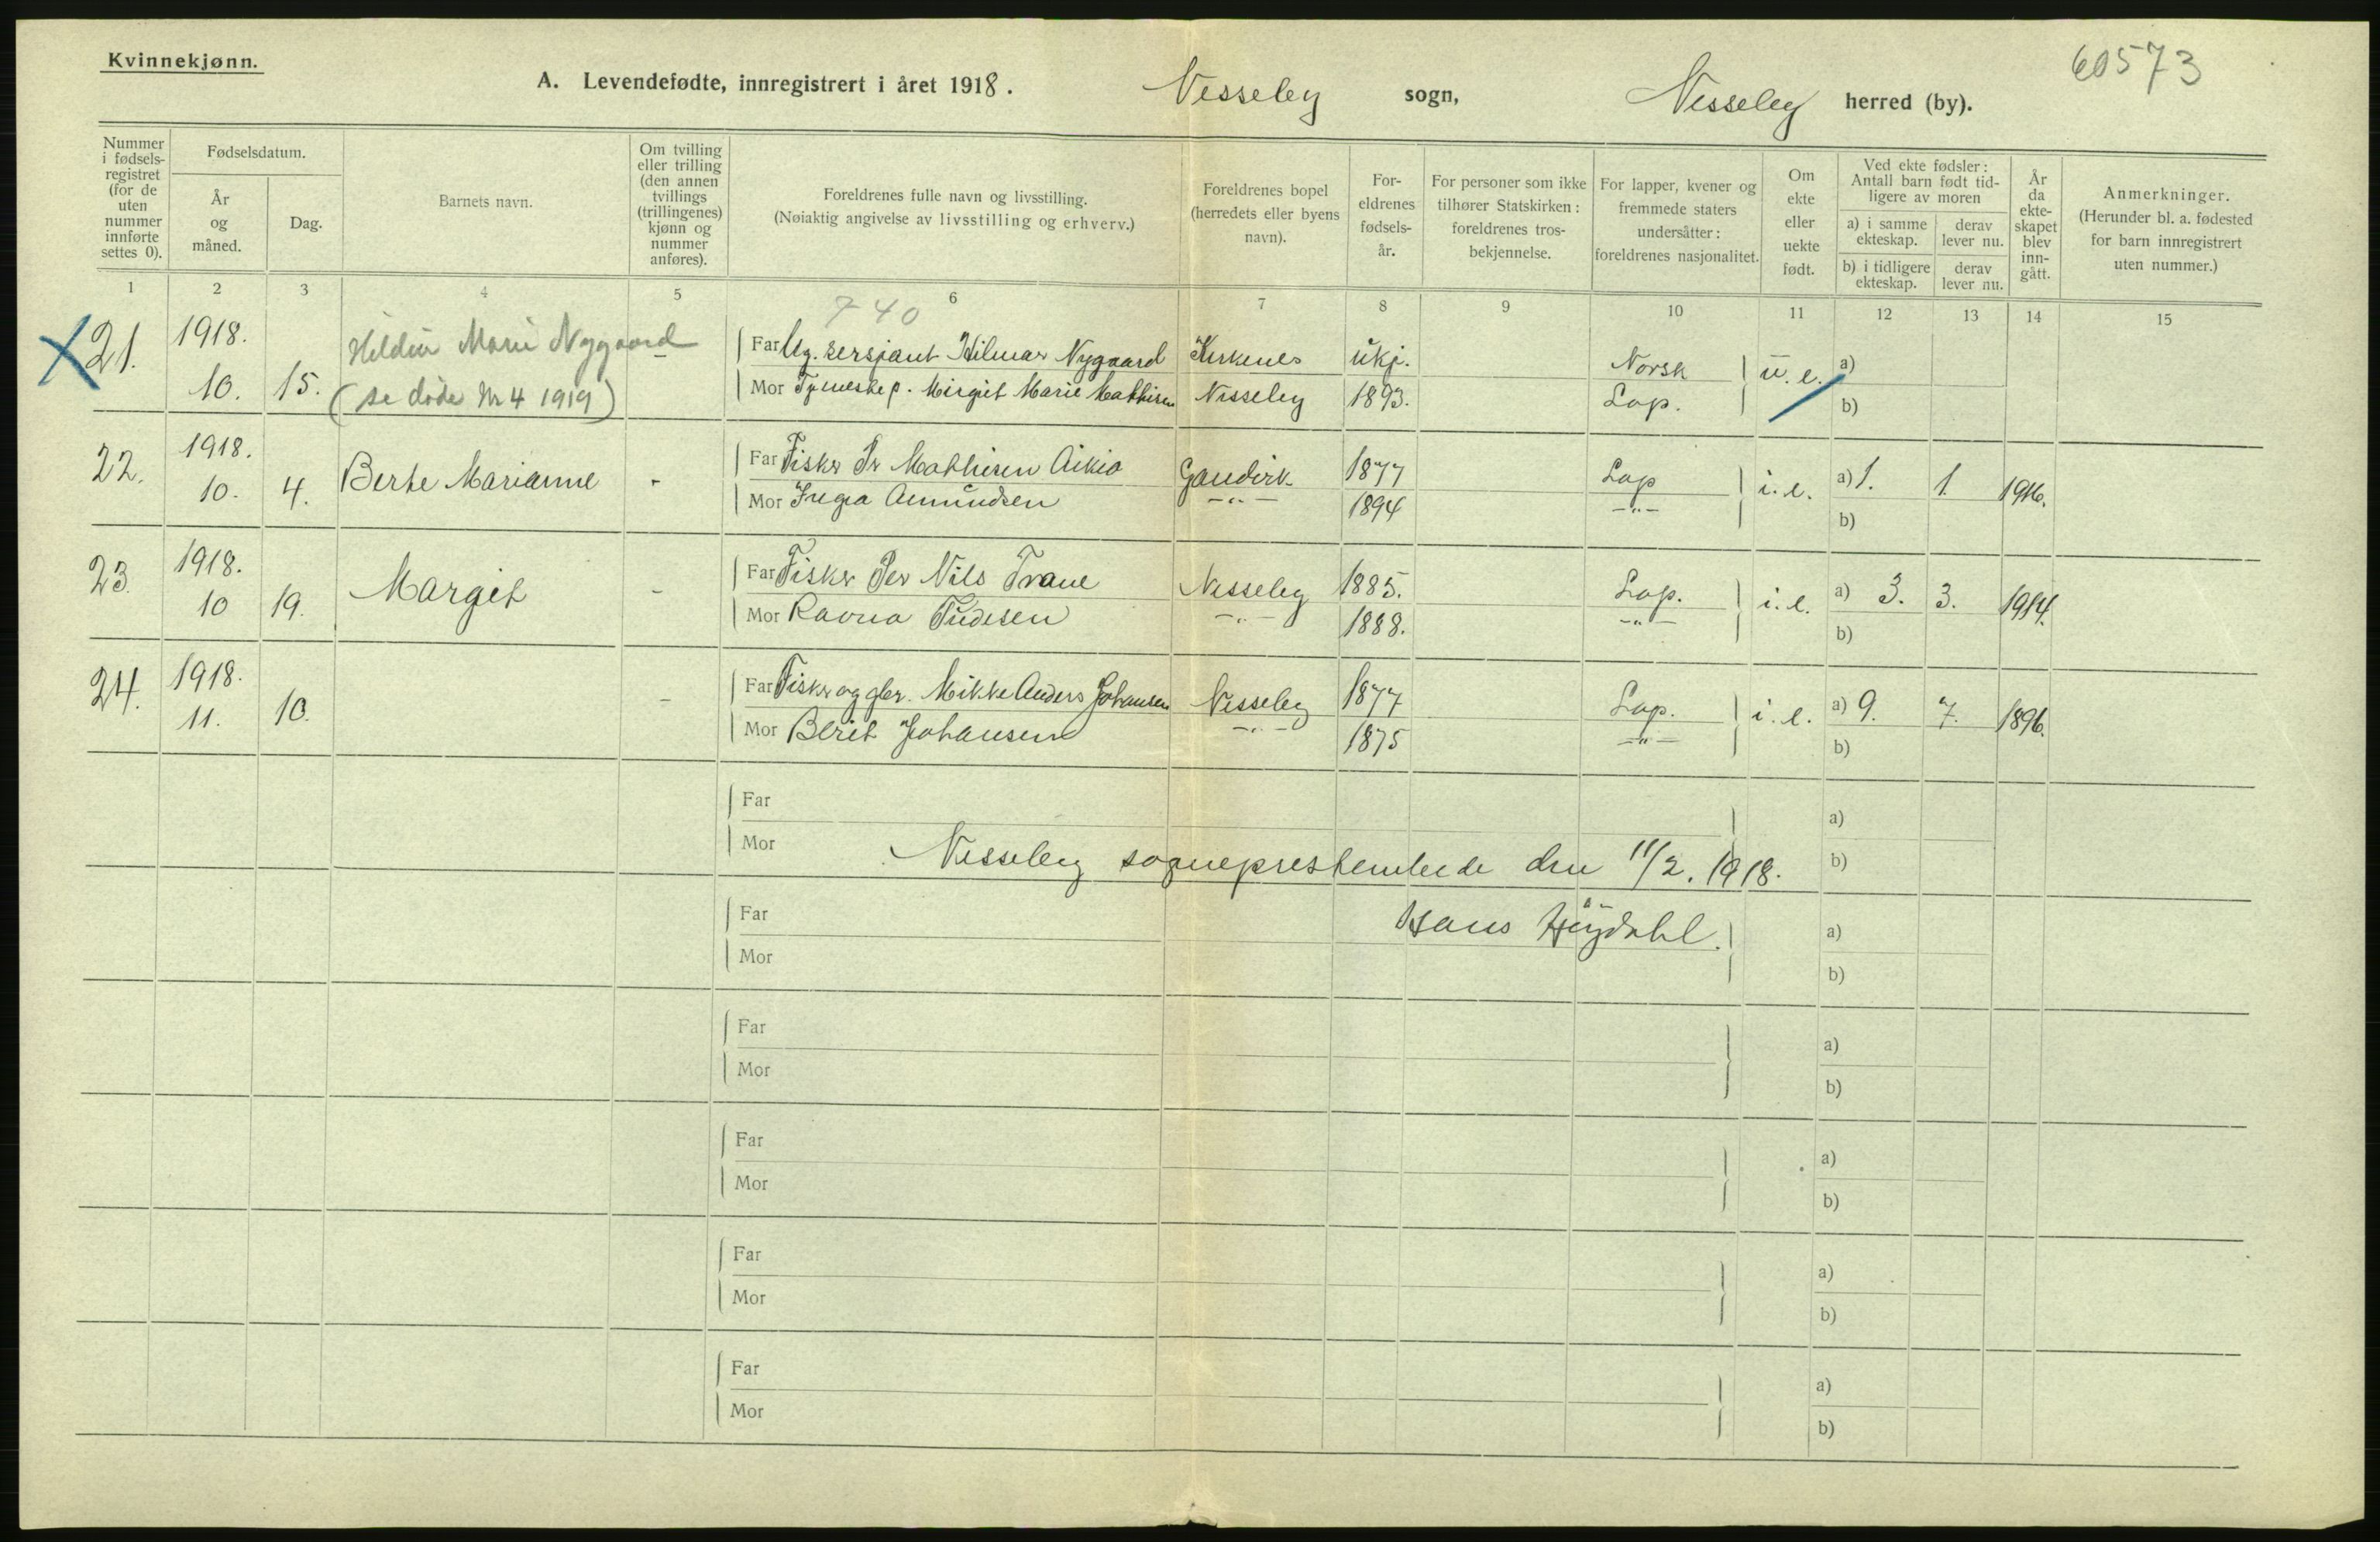 Kvinnekjønn.
60573
A. Levendefødte, innregistrert i året 1918. Nesseby sogn, Nesseby herred (by).
Nummer i fødsels-registret (for de uten nummer innførte settes 0).
Fødselsdatum.
År og måned.
Dag.
Barnets navn.
Om tvilling eller trilling (den annen tvillings (trillingenes) kjønn og nummer anføres).
Foreldrenes fulle navn og livsstilling.
(Nøiaktig angivelse av livsstilling og erhverv.)
Foreldrenes bopel (herredets eller byens navn).
For-eldrenes fødsels-år.
For personer som ikke tilhører Statskirken: foreldrenes tros-bekjennelse.
For lapper, kvener og fremmede staters undersåtter: foreldrenes nasjonalitet.
Om ekte eller uekte født.
Ved ekte fødsler: Antall barn født tid-ligere av moren
a) i samme ekteskap.
derav lever nu.
b) i tidligere ekteskap.
derav lever nu.
År da ekte-skapet blev inn-gått.
Anmerkninger.
(Herunder bl. a. fødested for barn innregistrert uten nummer.)
1 2 3 4 5 6 7 8 9 10 11 12 13 14 15
740
21. 1918. Hildur Marie Nygaard - Far Ug. sersjant Hilmar Nygaard Kirkenes ukj. Norsk u.e. a)
10. 15. (se døde Nr 4 1919) Mor Tjeneste p. Margit Marie Mathisen Nesseby 1893. Lap. b)
22. 1918. Berte Marianne - Far Fisker Pr Mathisen Aikio Gandvik 1877 Lap i.e. a) 1. 1. 1916.
10. 4. Mor Inga Amundsen -"- 1894 -"- b)
23. 1918. Margit - Far Fisker Per Nils Trane Nesseby 1885. Lap. i.e. a) 3. 3. 1914.
10 19. Mor Ravna Tudesen -"- 1888. -"- b)
24. 1918. - Far Fisker og gbr. Mikke Anders Johansen Nesseby 1877 Lap. i.e. a) 9. 7. 1896.
11. 10. Mor Berit Johansen -"- 1875 -"- b)
Far a)
Mor b)
Nesseby sogneprestembede den 11/2. 1918.
Far a)
Hans Høydahl.
Mor b)
Far a)
Mor b)
Far a)
Mor b)
Far a)
Mor b)
Far a)
Mor b)